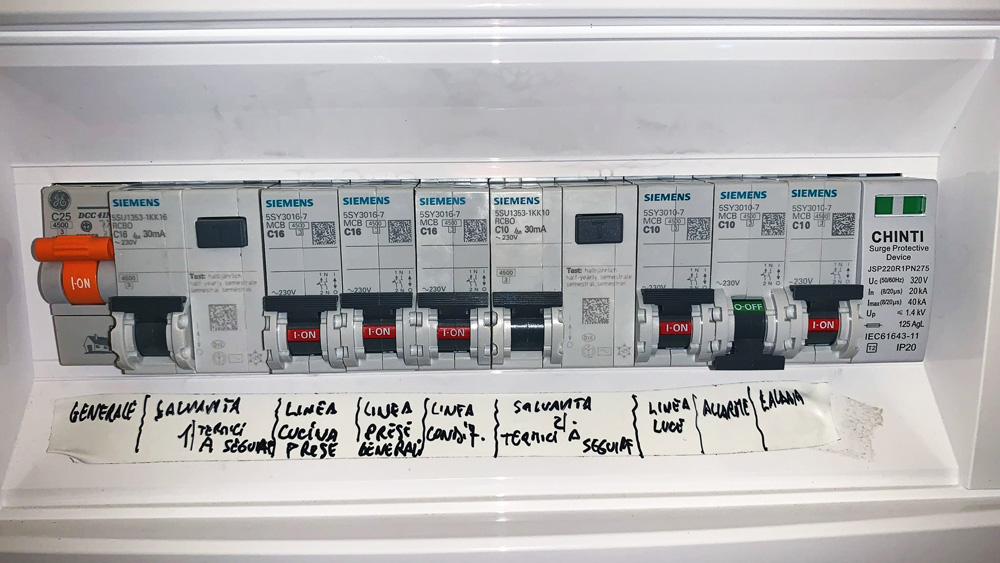 GE
C25
4500
3
I-ON
SIEMENS
5SU1353-1KK16
RCBO
C16 30mA
~ 230V
4500
3
Test: halbjährlich
half-yearly, semestrale
semestriel
SIEMENS
5SY3016-7
MCB 4500
C16 3
~230V
I-ON
SIEMENS
5SY3016-7
MCB 4500
C16 3
~230V
I-ON
SIEMENS
5SY3016-7
MCB 4500
C16 3
~230V
I-ON
SIEMENS
5SU1353-1KK10
RCBO
C10 30mA
~ 230V
4500
3
Test: halbjährlich
half-yearly, semestrale
SIEMENS
5SY3010-7
MCB 4500
C10 3
~230V
I-ON
SIEMENS
5SY3010-7
MCB 4500
C10 3
O-OFF
SIEMENS
5SY3010-7
MCB 4500
C10 3
~230V
I-ON
CHINTI
Surge Protective
Device
JSP220R1PN275
Uc (50/60Hz) 320V
In (8/20µs) 20kA
Imax(8/20µs) 40kA
Up ≤ 1.4 kV
125AgL
IEC61643-11
T2 IP20
GENERALE
SALVAVITA
1) TERMICI
A SEGUIRE
LINEA
CUCINA
PRESE
LINEA
PRESE
GENERALI
LINEA
CONDIZ.
SALVAVITA
2)
TERMICI A
SEGUIRE
LINEA
LUCI
ALLARME
CALDAIA